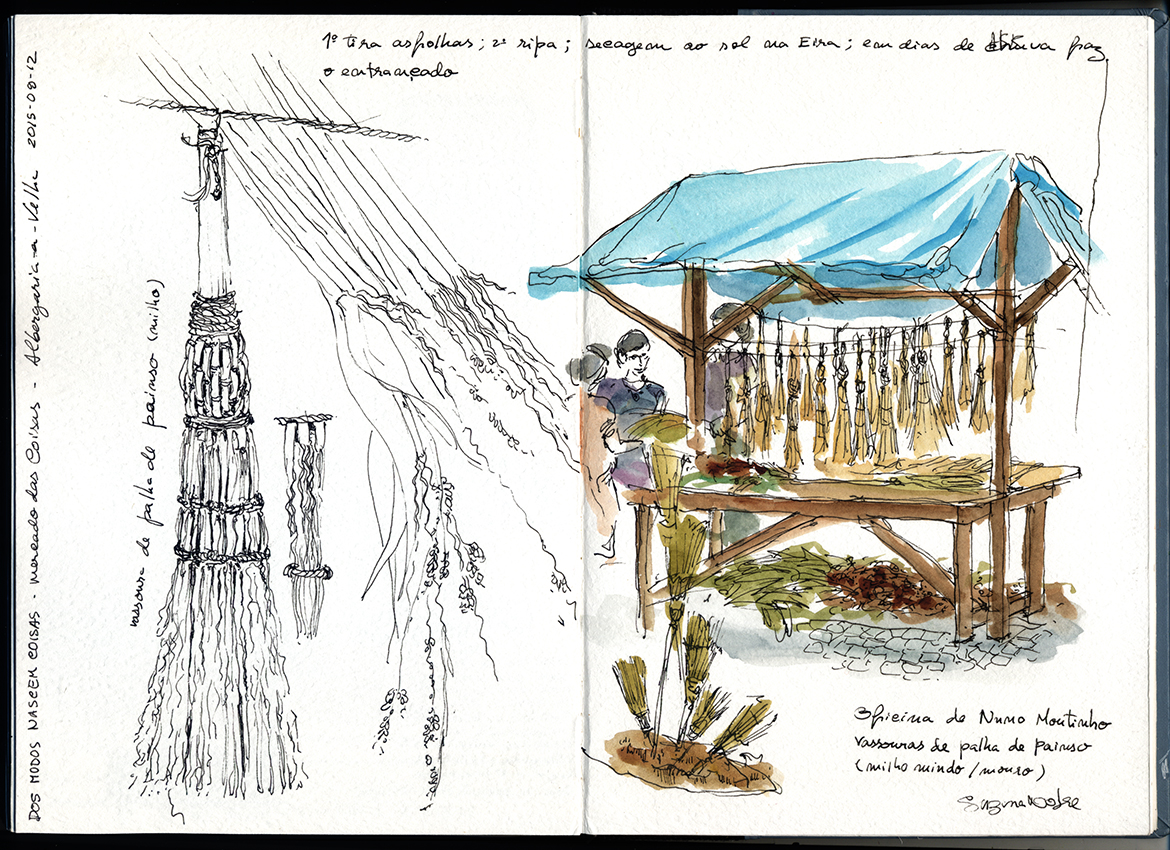 1º tira as folhas; 2º ripa; secagem ao sol na Eira; em dias de chuva faz
o entrançado
DOS MODOS NASCEM COISAS - Mercado das Coisas - Albergaria-a-Velha 2015-09-12
vassoura de palha de painso (milho)
Oficina de Nuno Moutinho
vassouras de palha de Painso
(milho miudo/mouro)
Suzana Nobre